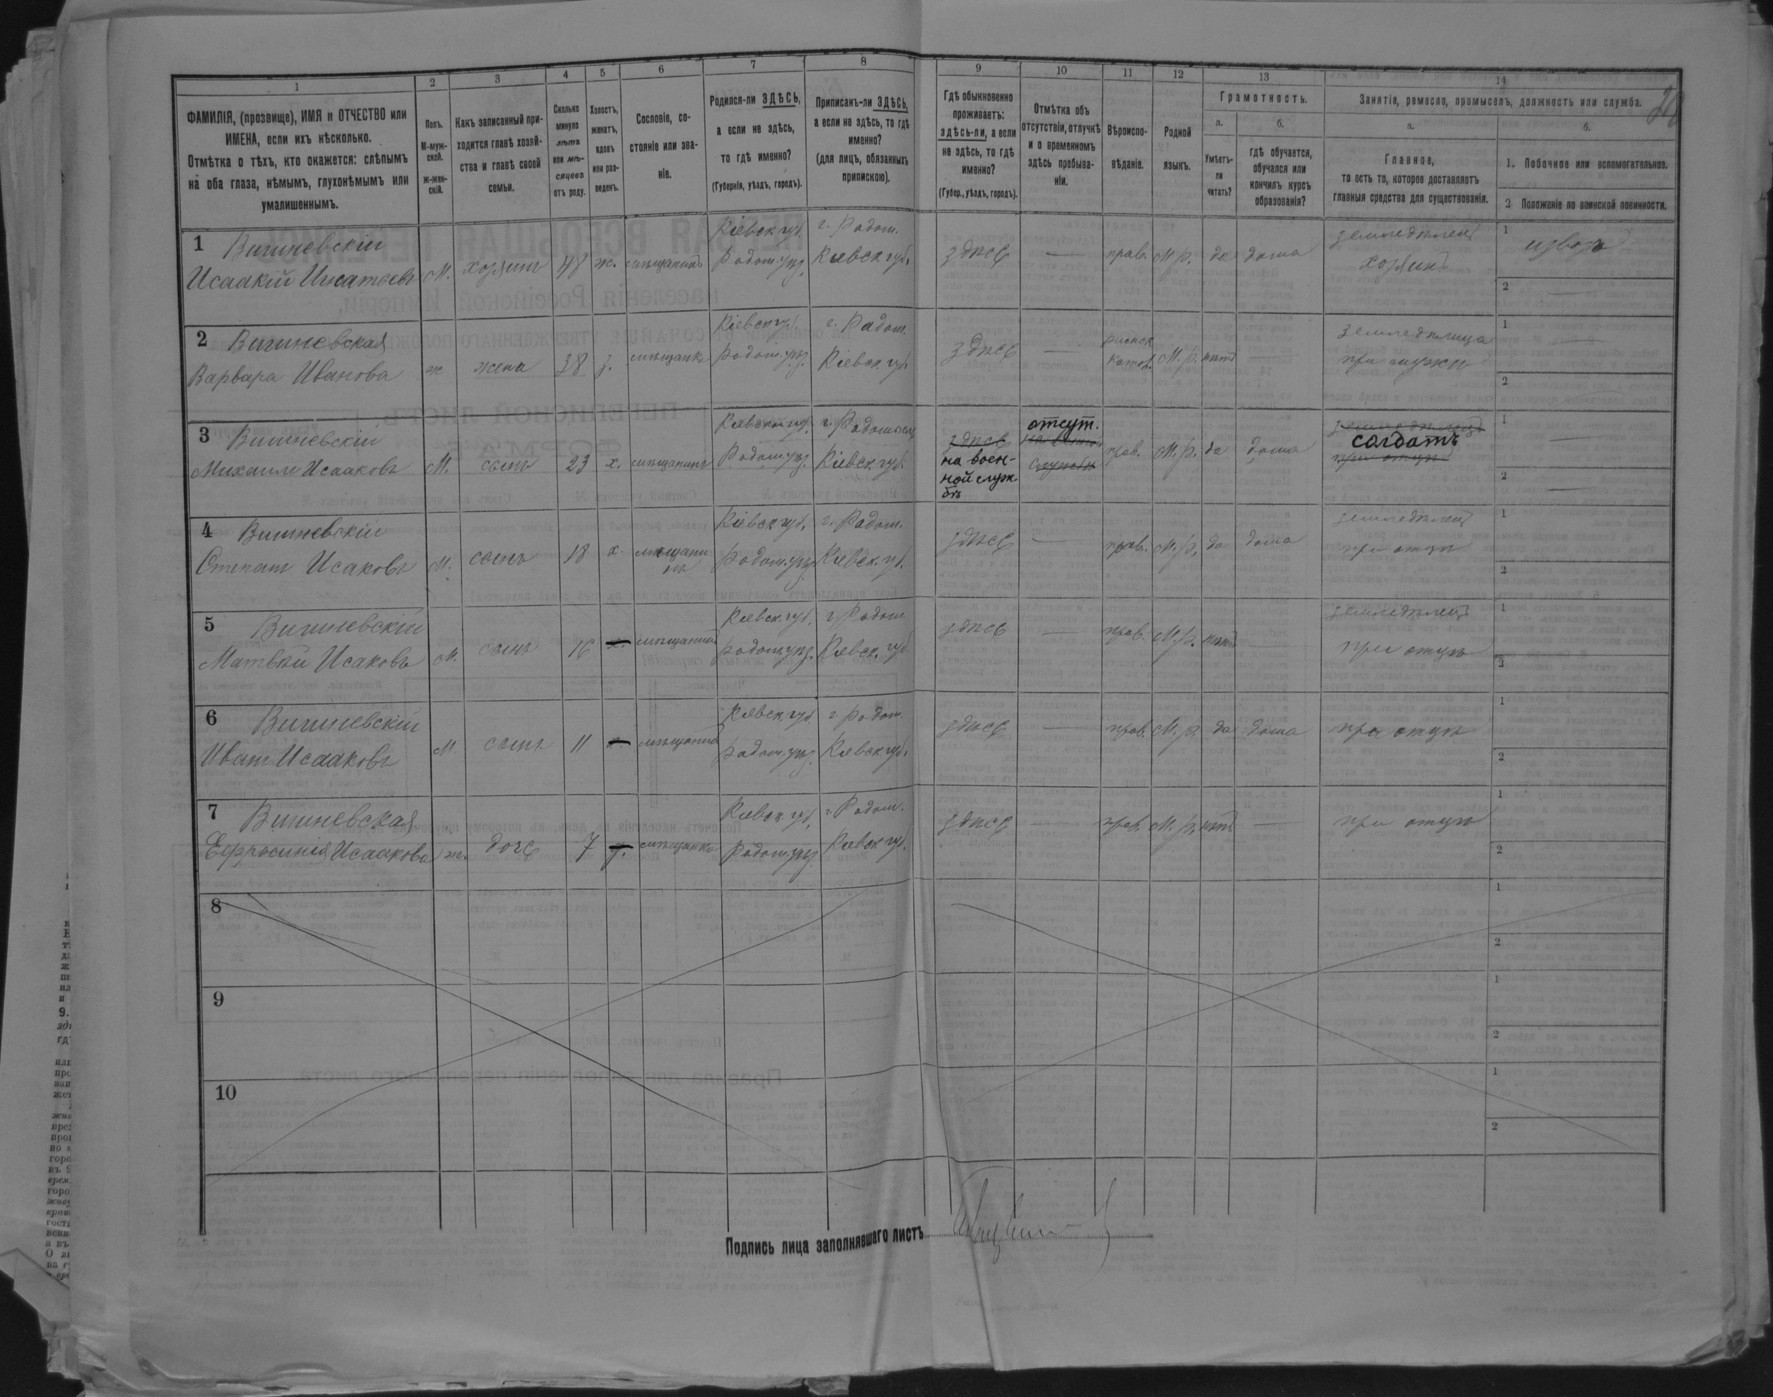 1
2
3
4
5
6
7
8
9
10
11
12
13
14
ФАМИЛІЯ, (прозвище), ИМЯ и ОТЧЕСТВО или
ИМЕНА, если ихъ нѣсколько.
Отмѣтка о тѣхъ, кто окажется: слѣпымъ
на оба глаза, нѣмымъ, глухонѣмымъ или
умалишеннымъ.
Полъ.
М-муж-
ской.
Ж-жен-
скій.
Какъ записанный при-
ходится главѣ хозяй-
ства и главѣ своей
семьи.
Сколько
минуло
лѣтъ
или мѣ-
сяцевъ
отъ роду.
Холостъ,
женатъ,
вдовъ
или раз-
веденъ.
Сословіе, со-
стояніе или зва-
ніе.
Родился-ли ЗДѢСЬ,
а если не здѣсь,
то гдѣ именно?
(Губернія, уѣздъ, городъ).
Приписанъ-ли ЗДѢСЬ,
а если не здѣсь, то гдѣ
именно?
(для лицъ, обязанныхъ
припискою).
Гдѣ обыкновенно
проживаетъ:
здѣсь-ли, а если
не здѣсь, то гдѣ
именно?
(Губер., уѣздъ, городъ).
Отмѣтка объ
отсутствіи, отлучкѣ
и о временномъ
здѣсь пребыва-
ніи.
Вѣроиспо-
вѣданіе.
Родной
языкъ.
Грамотность.
а.
Умѣетъ-
ли
читать?
б.
гдѣ обучается,
обучался или
кончилъ курсъ
образованія?
Занятія, ремесло, промыселъ, должность или служба.
а.
Главное,
то есть то, которое доставляетъ
главныя средства для существованія.
б.
1. Побочное или вспомогательное.
2 Положеніе по воинской повинности.
1 Вишневскій
Исаакій Игнатьевъ
м. хозяинъ 48 ж. мѣщанинъ
Кіевск. губ.
Радом. уѣз.
г. Радом.
Кіевск. губ.
здѣсь — прав. м.р. да дома
земледѣлец
хозяинъ
1 извозъ
2 —
2 Вишневская
Варвара Иванова
ж жена 38 з. мѣщанка
Кіевск. губ.
Радом. уѣз.
г. Радом.
Кіевск. губ.
здѣсь —
римск.
катол.
м.р. нѣтъ —
земледѣлица
при мужѣ
1 —
2
3 Вишневскій
Михаилъ Исааковъ
м. сынъ 23 х. мѣщанинъ
Кіевск. губ.
Радом. уѣз.
г. Радомысл.
Кіевск. губ.
здѣсь
на воен-
ной служ-
бѣ
отсут.
службѣ
прав. м.р. да дома
земледѣлец
солдатъ
при отцѣ
1 —
2 —
4 Вишневскій
Степанъ Исаковъ
м. сынъ 18 х. мѣщани
нъ
Кіевск. губ.
Радом. уѣз.
г. Радом.
Кіевск. губ.
здѣсь — прав. м.р. да дома
земледѣлец
при отцѣ
1
2
5 Вишневскій
Матвѣй Исаковъ
м. сынъ 16 мѣщанинъ
Кіевск. губ.
Радом. уѣз.
г. Радом
Кіевск. губ
здѣсь — прав. м.р. нѣтъ —
земледѣлец
при отцѣ
1
2
6 Вишневскій
Иванъ Исааковъ
м сынъ 11 мѣщанинъ
Кіевск. губ
Радом. уѣз.
г. Радом.
Кіевск. губ.
здѣсь — прав. м.р. да дома
при отцѣ
1
2
7 Вишневская
Ефросинія Исаакова
ж. дочь 7 мѣщанка
Кіевск. губ.
Радом. уѣз.
г. Радом.
Кіевск. губ.
здѣсь — прав. м.р. нѣтъ —
при отцѣ
1
2
8
1
2
9
1
2
10
1
2
Подпись лица заполнявшаго листъ